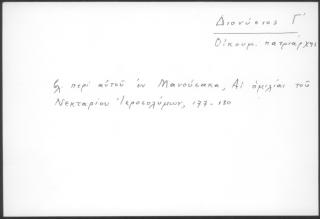 Διονύσιος Γ΄
Οἰκουμ. πατριάρχης
περὶ αὐτοῦ ἐν Μανούσακα, Αἱ ὁμιλίαι τοῦ
Νεκταρίου Ἱεροσολύμων, 177-180